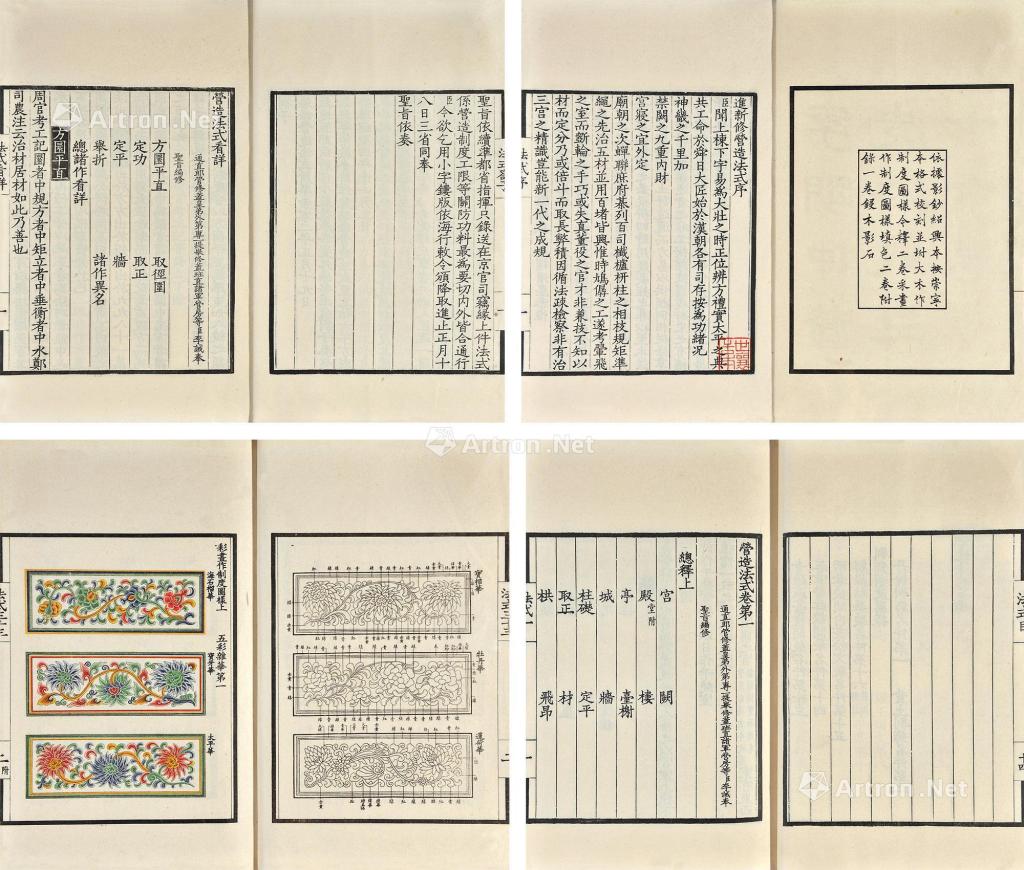 聖旨依續準都省指揮只錄送在京官司竊緣上件法式
係營造制度工限等關防功料最為要切內外皆合通行
臣今欲乞用小字鏤版依海行敕令頒降取進止正月十
八日三省同奉
聖旨依奏
營造法式看詳
聖旨編修
方圜平直
取徑圍
定功
取正
定平
牆
舉折
諸作異名
總諸作看詳
方圜平直
周官考工記圜者中規方者中矩立者中垂衡者中水鄭
司農注云治材居材如此乃善也
依據影鈔紹興本按崇寧
本格式校刻並坿大木作
制度圖樣今釋二卷采畫
作制度圖樣填色二卷附
錄一卷鋟木影石
進新修營造法式序
臣聞上棟下宇易為大壯之時正位辨方禮實太平之典
共工命於舜日大匠始於漢朝各有司存按為功緒況
神畿之千里加
禁闕之九重內財
宮寢之宜外定
廟朝之次蟬聯庶府棊列百司櫼櫨枅柱之相枝規矩準
繩之先治五材並用百堵皆興惟時鳩僝之工遂考翬飛
之室而斵輪之手巧或失真董役之官才非兼技不知以
材而定分乃或倍斗而取長弊積因循法疎檢察非有治
三宮之精識豈能新一代之成規
法式序
寶相華
牡丹華
蓮荷華
彩畫作制度圖樣上
五彩雜華第一
海石榴華
寶牙華
太平華
營造法式卷第一
通直郎管修蓋皇弟外第專一提舉修蓋班直諸軍營房等臣李誡奉
聖旨編修
總釋上
宮
闕
殿 堂附
樓
亭
臺榭
城
牆
柱礎
定平
取正
材
栱
飛昂
法式一
Artron.Net
Artron.Net
Artron.Net
Artron.Net